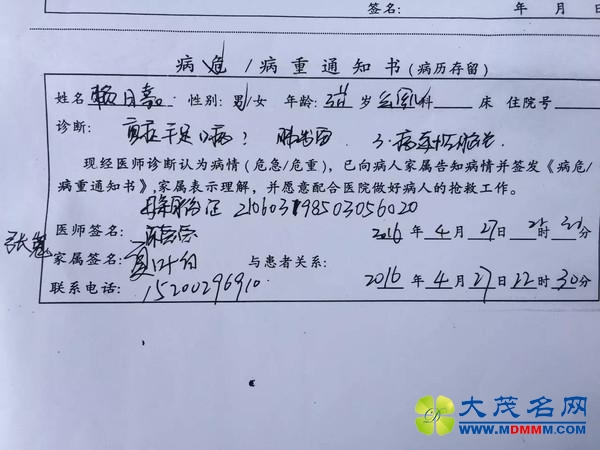 签名: 年 月 日
病危/病重通知书(病历存留)
姓名 性别:男/女 年龄: 岁 科 床 住院号
诊断: 重症手足口病? 肺出血 3.
现经医师诊断认为病情(危急/危重),已向病人家属告知病情并签发《病危/
病重通知书》,家属表示理解,并愿意配合医院做好病人的抢救工作。
母亲身份证 210603198503056020
医师签名: 2016年4月27日 时 分
家属签名: 与患者关系: 2016年4月27日22时30分
联系电话: 15200296910
大茂名网
WWW.MDMMM.COM